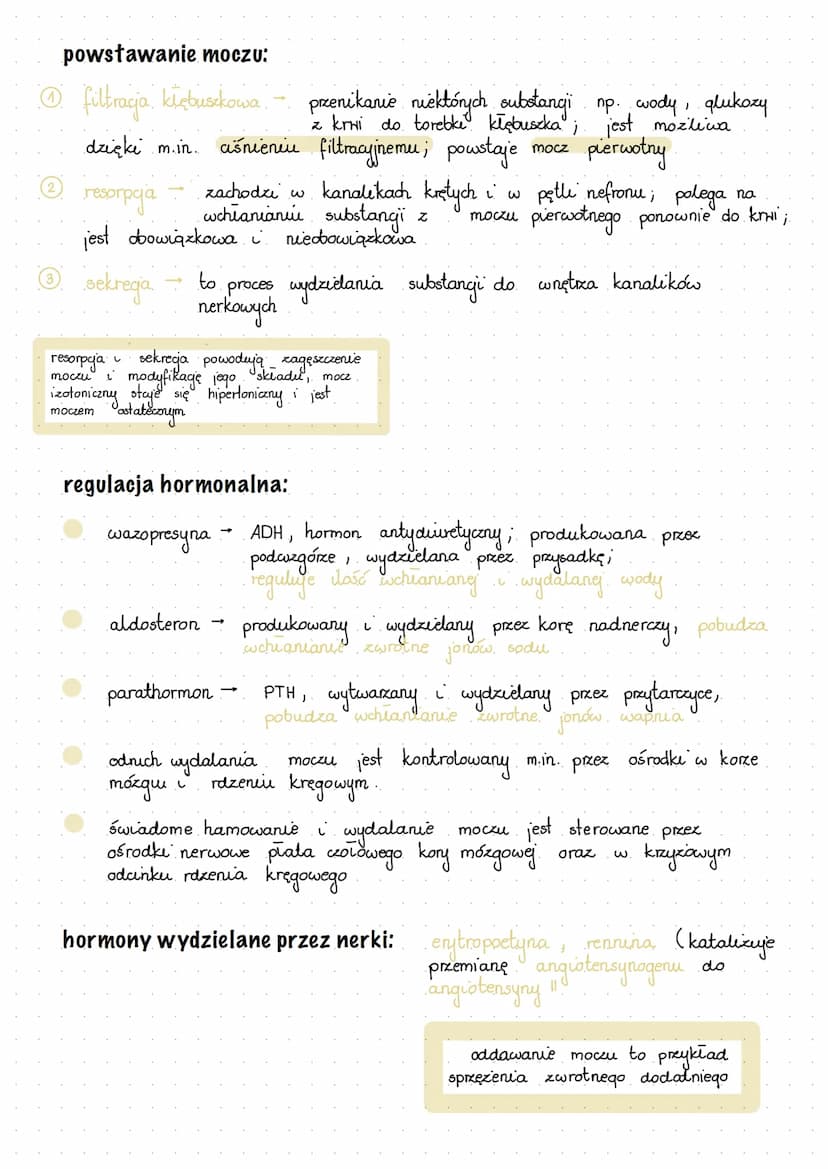 powstawanie moczu:
1 filtracja kłębuszkowa → przenikanie niektórych substancji np. wody, glukozy
z krwi do torebki kłębuszka; jest możliwa
dzięki m.in. ciśnieniu filtracyjnemu; powstaje mocz pierwotny
2 resorpcja → zachodzi w kanalikach krętych i w pętli nefronu; polega na
wchłanianiu substancji z moczu pierwotnego ponownie do krwi;
jest obowiązkowa i nieobowiązkowa
3 sekrecja → to proces wydzielania substancji do wnętrza kanalików
nerkowych
resorpcja i sekrecja powodują zagęszczenie
moczu i modyfikację jego składu, mocz
izotoniczny staje się hipertoniczny i jest
moczem ostatecznym
regulacja hormonalna:
wazopresyna → ADH, hormon antydiuretyczny; produkowana przez
podwzgórze, wydzielana przez przysadkę;
reguluje ilość wchłanianej i wydalanej wody
aldosteron → produkowany i wydzielany przez korę nadnerczy, pobudza
wchłanianie zwrotne jonów sodu
parathormon → PTH, wytwarzany i wydzielany przez przytarczyce,
pobudza wchłanianie zwrotne jonów wapnia
odruch wydalania moczu jest kontrolowany m.in. przez ośrodki w korze
mózgu i rdzeniu kręgowym.
świadome hamowanie i wydalanie moczu jest sterowane przez
ośrodki nerwowe płata czołowego kory mózgowej oraz w krzyżowym
odcinku rdzenia kręgowego
hormony wydzielane przez nerki: erytropoetyna, rennina (katalizuje
przemianę angiotensynogenu do
angiotensyny II
oddawanie moczu to przykład
sprzężenia zwrotnego dodatniego